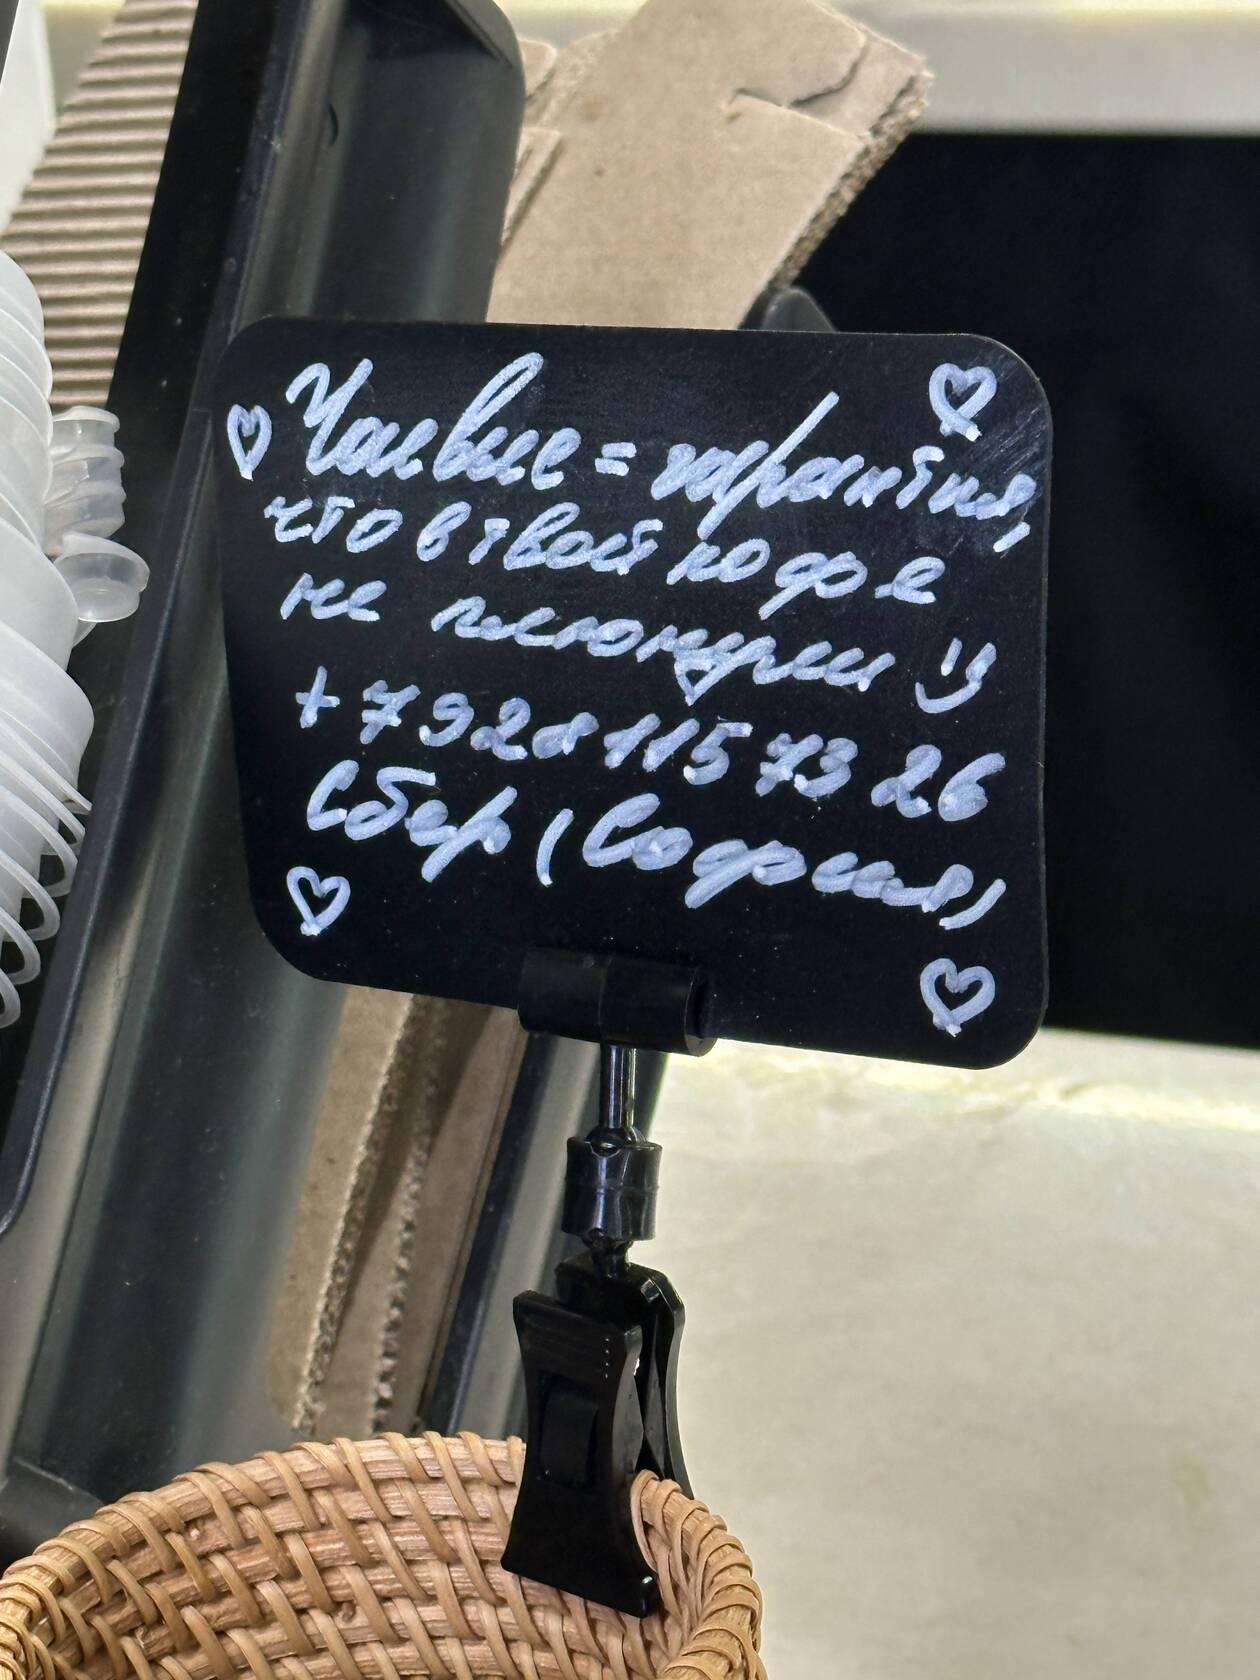 Чаевые = гарантия,
что в твой кофе
не плюнули
+7 928 115 73 26
Сбер (София)